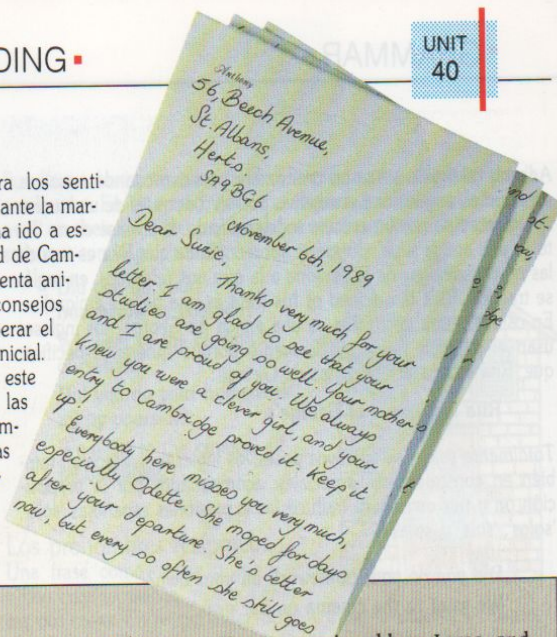 DING
UNIT
40
ra los senti-
ante la mar-
na ido a es-
d de Cam-
enta ani-
consejos
erar el
nicial.
este
las
m-
as
Anthony
56, Beech Avenue,
St. Albans,
Herts.
SA9BG6
November 6th, 1989
Dear Suzie,
Thanks very much for your
letter. I am glad to see that your
studies are going so well. Your mother
and I are proud of you. We always
knew you were a clever girl, and your
entry to Cambridge proved it. Keep it
up!
Everybody here misses you very much,
especially Odette. She moped for days
after your departure. She's better
now, but every so often she still goes